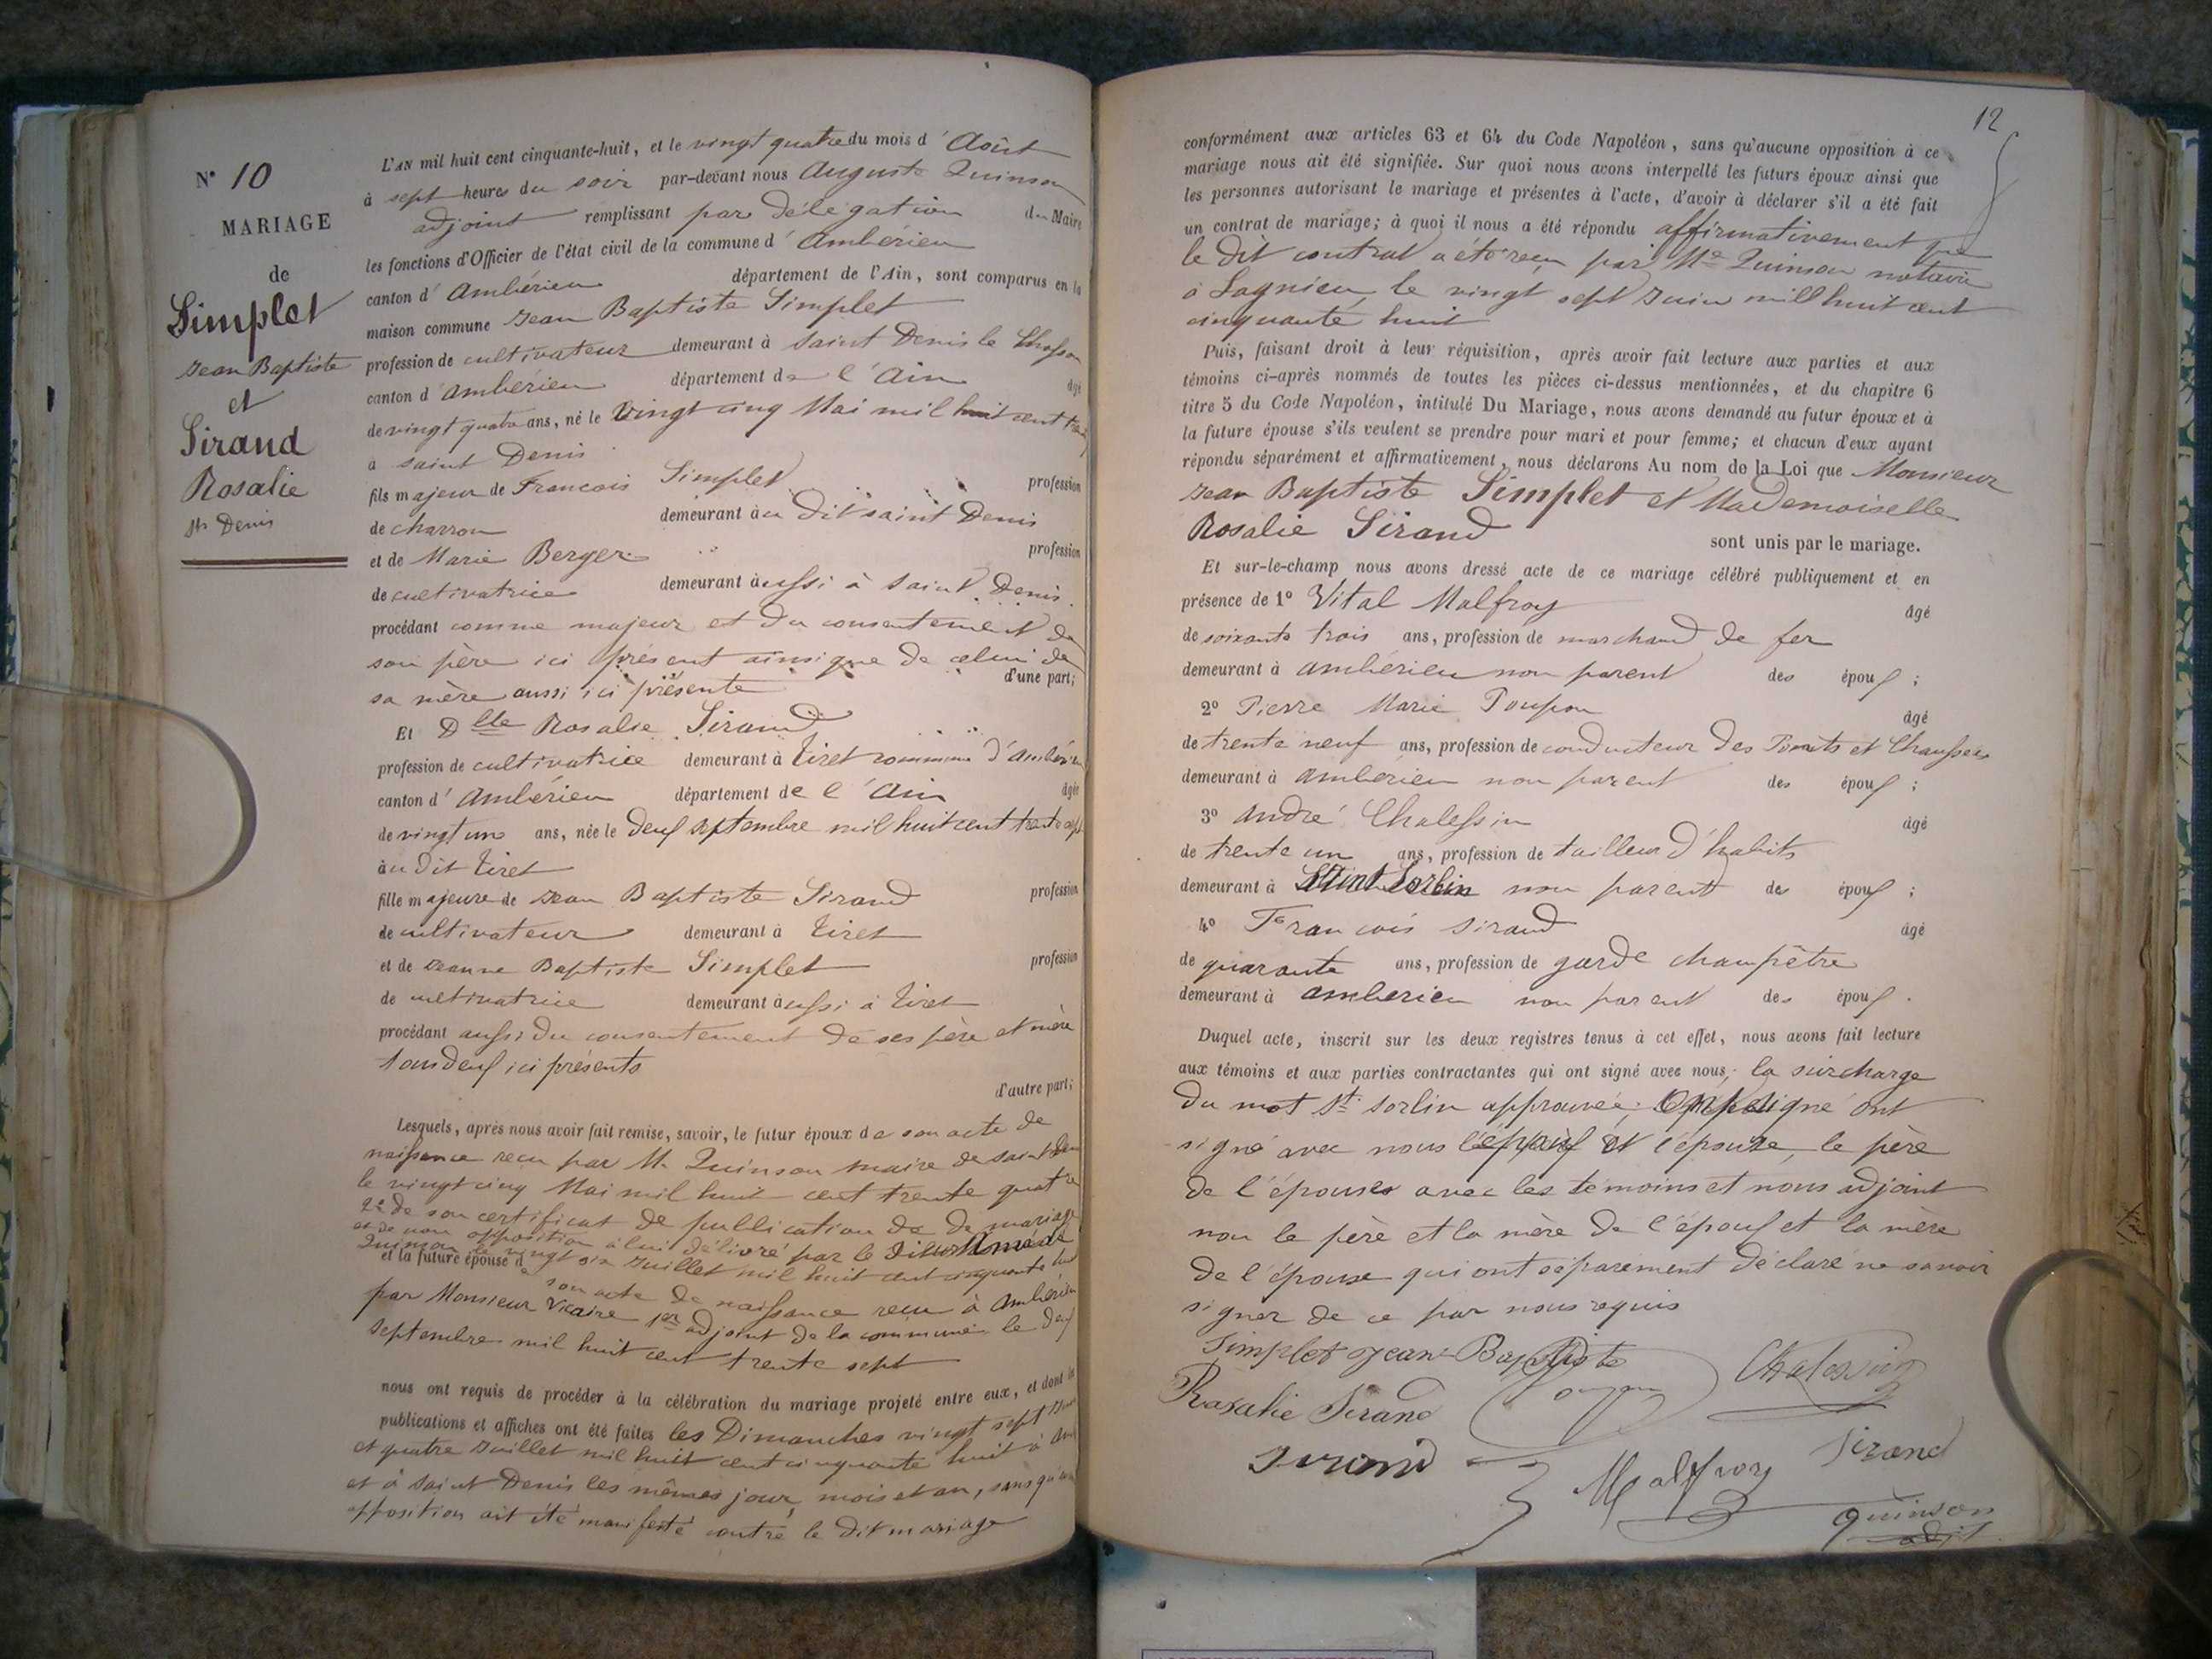 N° 10
MARIAGE
de
Simplet
Jean Baptiste
et
Sirand
Rosalie
St Denis
L'AN mil huit cent cinquante-huit, et le vingt quatre du mois d'Août
à sept heures du soir par-devant nous Auguste Quinson
adjoint remplissant par délégation du Maire
les fonctions d'Officier de l'état civil de la commune d'Ambérieu
canton d'Ambérieu département de l'Ain, sont comparus en la
maison commune Jean Baptiste Simplet
profession de cultivateur demeurant à Saint Denis le Chosson
canton d'Ambérieu département de l'Ain âgé
de vingt quatre ans, né le vingt cinq Mai mil huit cent
à saint Denis
fils majeur de Francois Simplet profession
de charron demeurant au dit saint Denis
et de Marie Berger profession
de cultivatrice demeurant aussi à saint Denis
procédant comme majeur et du consentement de
son père ici présent ainsi que de celui de
sa mère aussi ici présente d'une part;
Et Dlle Rosalie Sirand
profession de cultivatrice demeurant à Tiret commune d'Ambérieu
canton d'Ambérieu département de l'Ain âgée
de vingt un ans, née le deux septembre mil huit cent trente sept
au dit Tiret
fille majeure de Jean Baptiste Sirand profession
de cultivateur demeurant à Tiret
et de Jeanne Baptiste Simplet profession
de cultivatrice demeurant aussi à Tiret
procédant aussi du consentement de ses père et mère
tous deux ici présents
d'autre part;
Lesquels, après nous avoir fait remise, savoir, le futur époux de son acte de
naissance recu par M. Quinson maire de saint Denis
le vingt cinq Mai mil huit cent trente quatre
2° de son certificat de publication de de mariage
et de non opposition à lui délivré par le
Quinson le vingt six Juillet mil huit cent cinquante huit
et la future épouse de son acte de naissance recu à Ambérieu
par Monsieur Vicaire 1er adjoint de la commune le deux
septembre mil huit cent trente sept
nous ont requis de procéder à la célébration du mariage projeté entre eux, et dont les
publications et affiches ont été faites les Dimanches vingt sept Juin
et quatre Juillet mil huit cent cinquante huit à Am
et à saint Denis les mêmes jour, mois et an, sans qu'aucune
opposition ait été manifesté contre le dit mariage
12
conformément aux articles 63 et 64 du Code Napoléon, sans qu'aucune opposition à ce
mariage nous ait été signifiée. Sur quoi nous avons interpellé les futurs époux ainsi que
les personnes autorisant le mariage et présentes à l'acte, d'avoir à déclarer s'il a été fait
un contrat de mariage; à quoi il nous a été répondu affirmativement que
le dit contrat a été recu par Me Quinson notaire
à Lagnieu le vingt sept Juin mill huit cent
cinquante huit
Puis, faisant droit à leur réquisition, après avoir fait lecture aux parties et aux
témoins ci-après nommés de toutes les pièces ci-dessus mentionnées, et du chapitre 6
titre 5 du Code Napoléon, intitulé Du Mariage, nous avons demandé au futur époux et à
la future épouse s'ils veulent se prendre pour mari et pour femme; et chacun d'eux ayant
répondu séparément et affirmativement, nous déclarons Au nom de la Loi que Monsieur
Jean Baptiste Simplet et Mademoiselle
Rosalie Sirand sont unis par le mariage.
Et sur-le-champ nous avons dressé acte de ce mariage célébré publiquement et en
présence de 1° Vital Malfroy âgé
de soixante trois ans, profession de marchand de fer
demeurant à ambérieu non parent des époux;
2° Pierre Marie Poupon âgé
de trente neuf ans, profession de conducteur des Ponts et Chaussées
demeurant à ambérieu non parent des époux;
3° André Chalessin âgé
de trente un ans, profession de tailleur d'habits
demeurant à Saint Sorlin non parent des époux;
4° Francois Sirand âgé
de quarante ans, profession de garde champêtre
demeurant à ambérieu non parent des époux.
Duquel acte, inscrit sur les deux registres tenus à cet effet, nous avons fait lecture
aux témoins et aux parties contractantes qui ont signé avec nous, la surcharge
du mot St Sorlin approuvée. ont
signé avec nous l'époux et l'épouse, le père
de l'épouse avec les témoins et nous adjoint
non le père et la mère de l'époux et la mère
de l'épouse qui ont séparément déclaré ne savoir
signer de ce par nous requis
Simplet Jean Baptiste
Chalessin
Rosalie Sirand
Poupon
Sirand
Malfroy
Sirand
Quinson
adjt